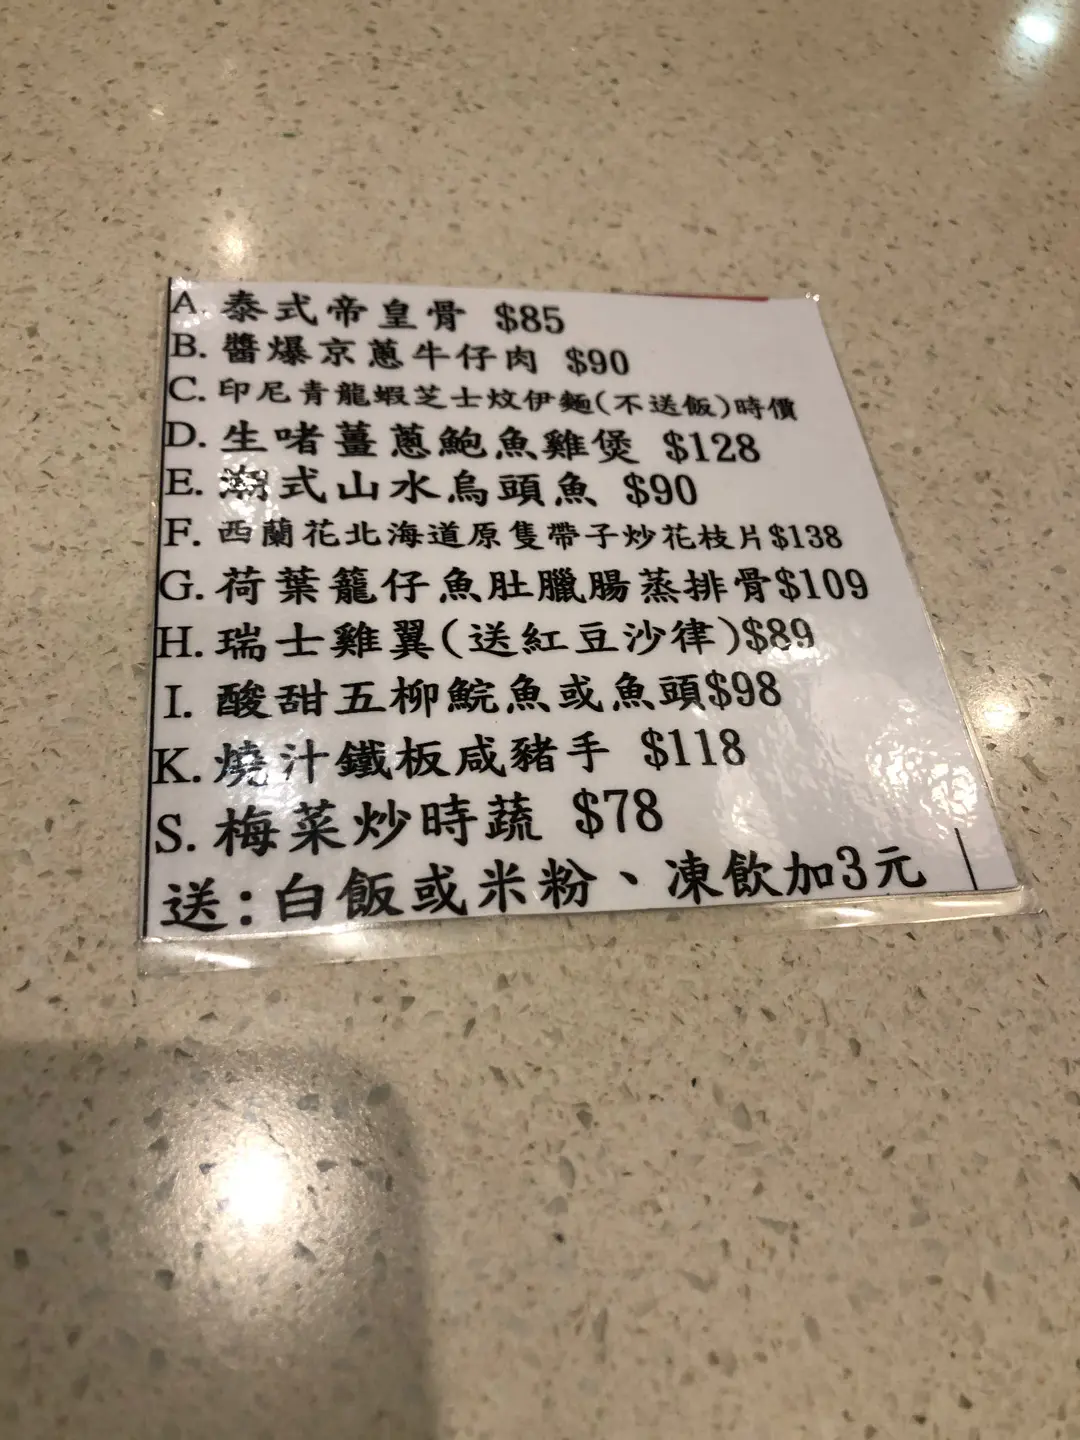 A. 泰式帝皇骨 $85
B. 醬爆京蔥牛仔肉 $90
C. 印尼青龍蝦芝士炆伊麵(不送飯)時價
D. 生啫薑蔥鮑魚雞煲 $128
E. 潮式山水烏頭魚 $90
F. 西蘭花北海道原隻帶子炒花枝片$138
G. 荷葉籠仔魚肚臘腸蒸排骨$109
H. 瑞士雞翼(送紅豆沙律)$89
I. 酸甜五柳鯇魚或魚頭$98
K. 燒汁鐵板咸豬手 $118
S. 梅菜炒時蔬 $78
送:白飯或米粉、凍飲加3元